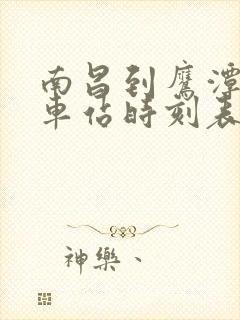 南昌到鹰潭
車站時刻表
神樂、